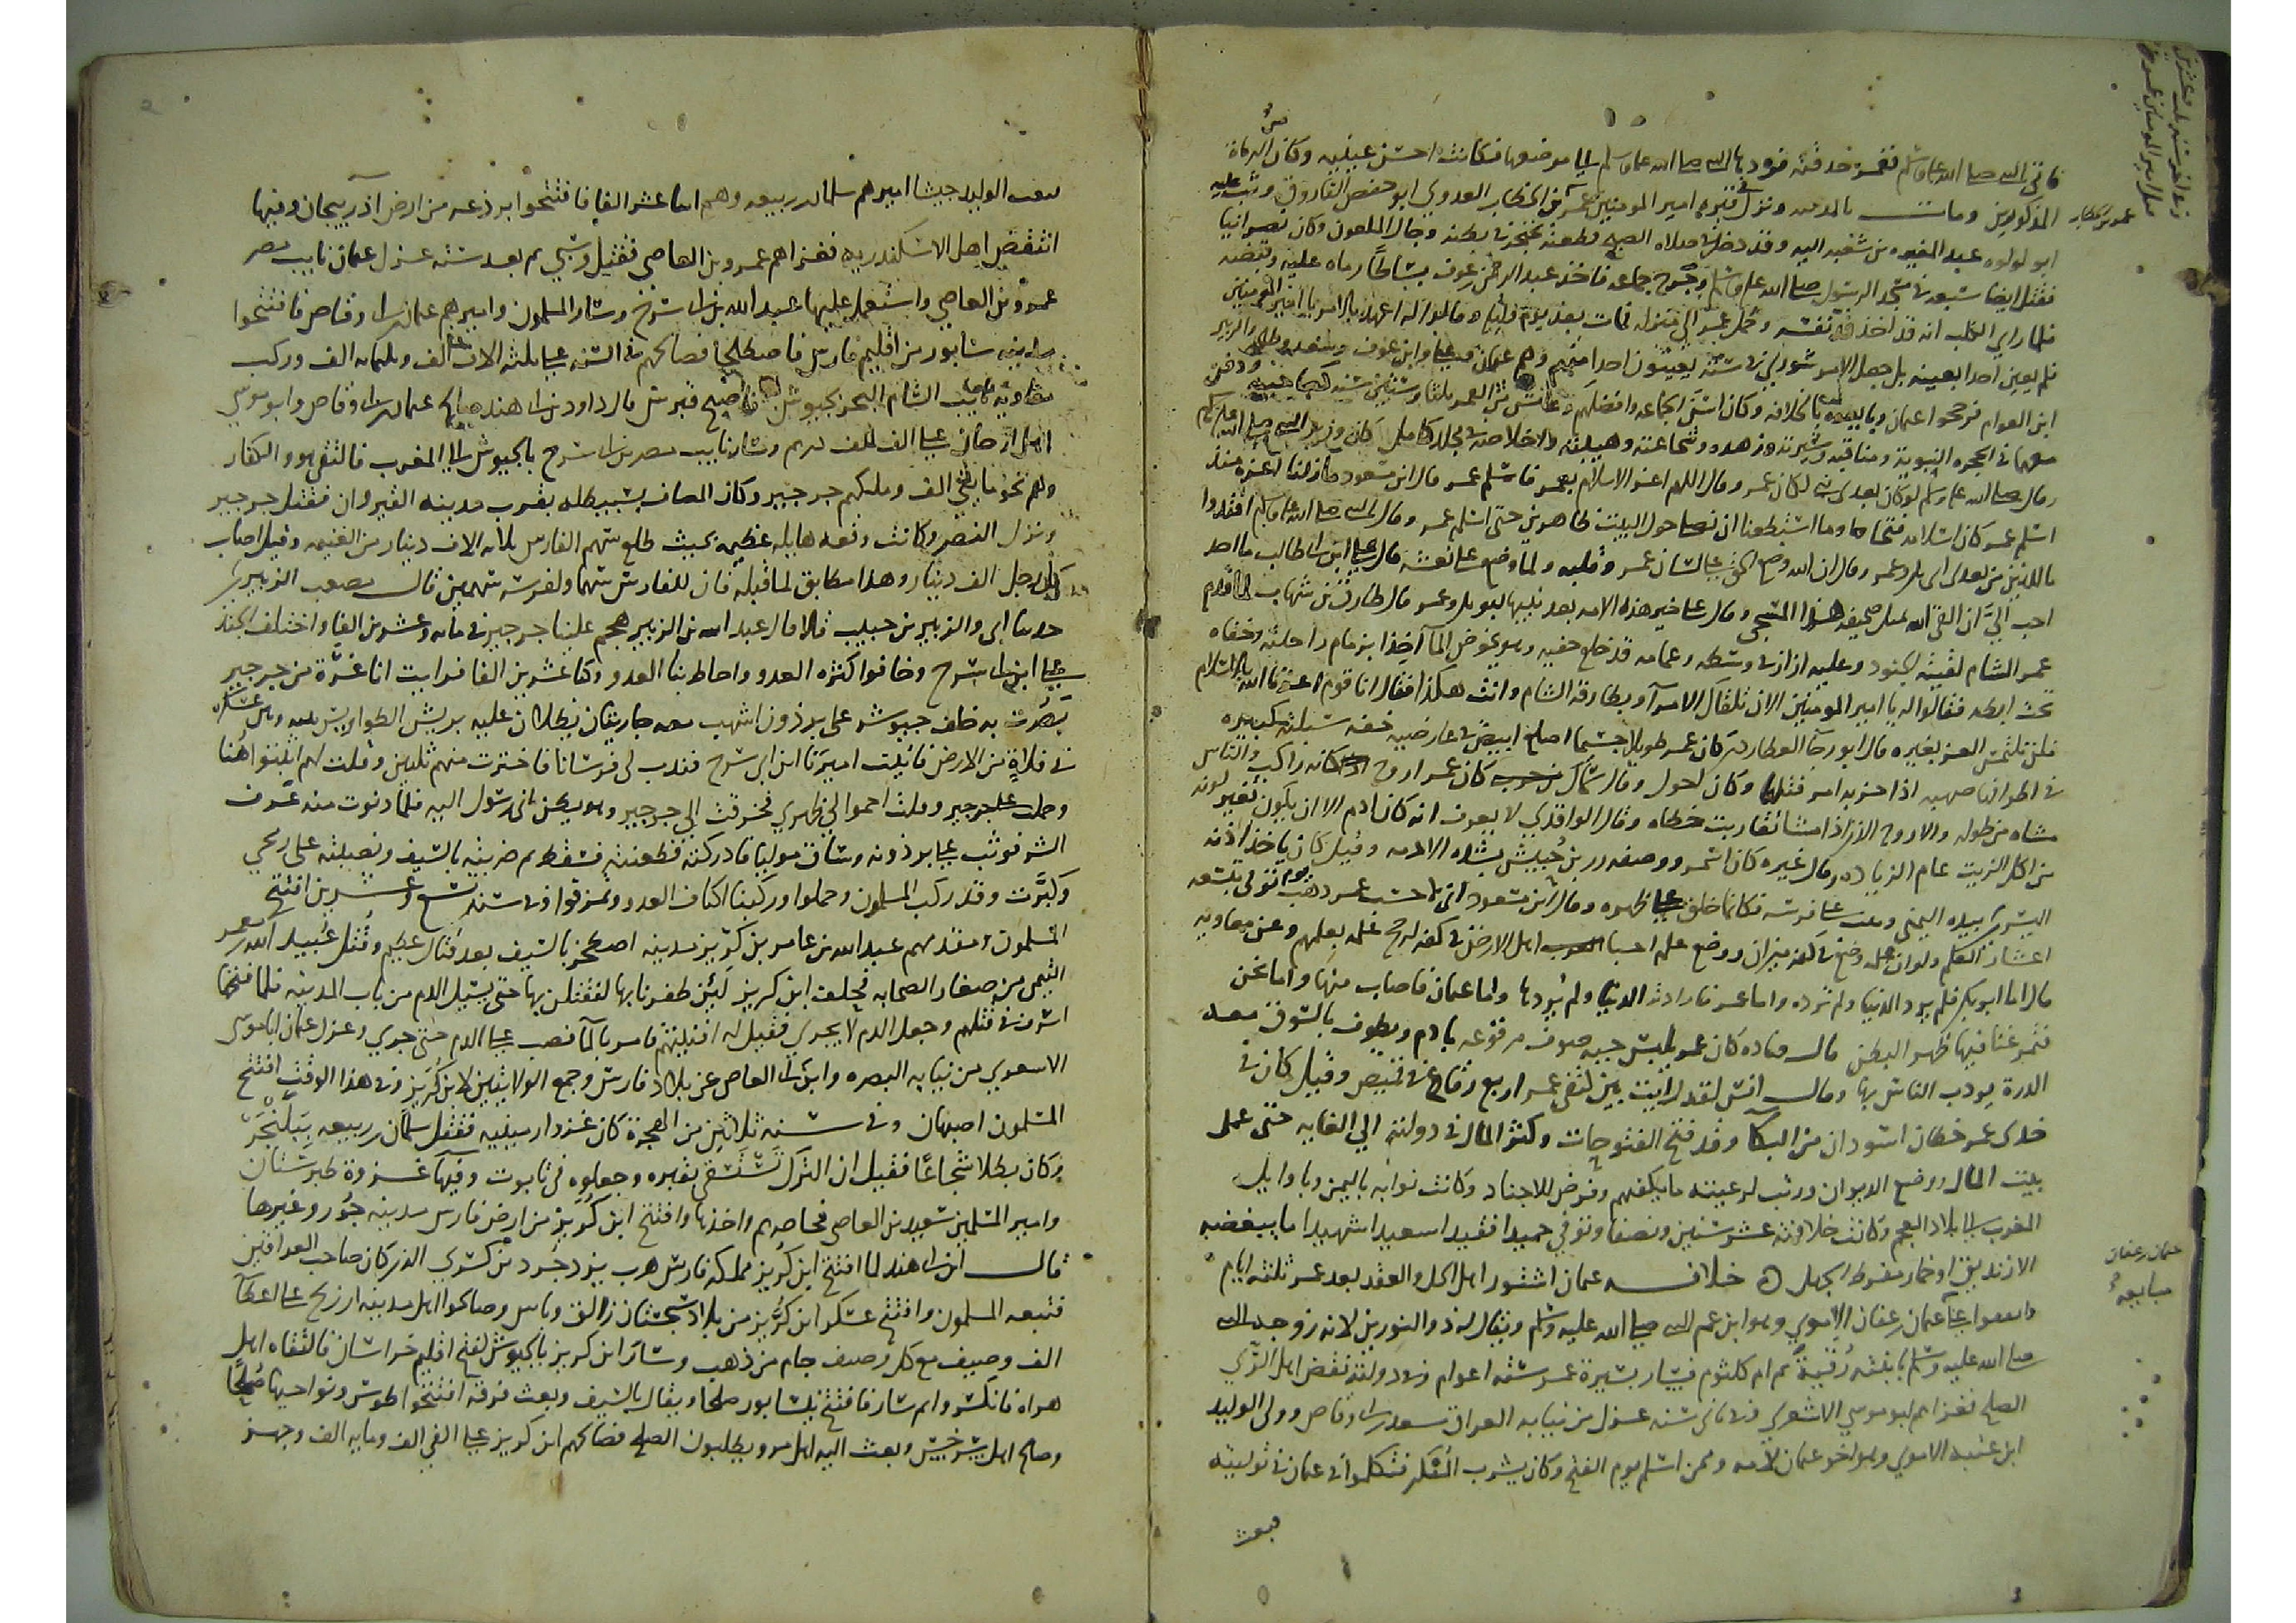 فاتي النبي صلى الله عليه وسلم فغمز حدقته فردها النبي صلى الله عليه وسلم الى موضعها فكانت احسن عينيه وكان من الرماة
المذكورين ومات بالمدينة ونزل في قبره امير المومنين عمر بن الخطاب العدوي ابو حفص الفاروق وثب عليه
ابو لولوه عبد المغيره بن شعبه اليه وقد دخل في صلاه الصبح فطعنه بخنجر في بطنه وجال الملعون وكان نصرانيا
فقتل ايضا سبعه في مسجد الرسول صلى الله عليه وسلم وجرح جماعه فاخذ عبد الرحمن بن عوف بساطا رماه عليه وقبضه
فلما راى الكلب انه قد اخذ قتل نفسه وحمل عمر الى منزله فمات بعد يوم وليله وقالوا له اعهد بالامر يا امير المومنين
فلم يعين احدا بعينه بل جعل الامر شورى في سته يعينون احدا منهم وهم عثمان وعلي وابن عوف وسعد وطلحه والزبير
ابن العوام فرجحوا عثمان وبايعوه بالخلافه وكان اسن الجماعه وافضلهم عاش عمر من العمر ثلثا وستين سنه ودفن
معهما في الحجره النبوية ومناقبه وسيرته وزهده وشجاعته وهيبته واخلاصه في مجلد كامل كان وزير النبي صلى الله عليه وسلم
وقال صلى الله عليه وسلم لو كان بعدى نبي لكان عمر وقال اللهم اعز الاسلام بعمر فاسلم عمر قال ابن مسعود ما زلنا اعزه منذ
اسلم عمر كان اسلامه فتحا وما استطعنا ان نصلي حول البيت ظاهرين حتى اسلم عمر وقال النبي صلى الله عليه وسلم اقتدوا
باللذين من بعدى ابى بكر وعمر وقال ان الله وضع الحق على لسان عمر وقلبه ولما وضع على نعشه قال علي ابن ابى طالب ما احد
احب الي ان القى الله بمثل صحيفته هذا المسجى وقال علي خير هذه الامه بعد نبيها ابو بكر وعمر قال طارق بن شهاب لما قدم
عمر الشام لقيته الجنود وعليه ازار في وسطه وعمامه قد خلع خفيه وهو يخوض الما اخذا بزمام راحلته وخفاه
تحت ابطه فقالوا له يا امير المومنين الان تلقاك الامرآ وبطارقة الشام وانت هكذا فقال انا قوم اعزنا الله بالاسلام
فلن نلتمس العز بغيره قال ابو رجآ العطاردى كان عمر طويلا جسيما اصلع ابيض في عارضيه خفه سبلته كبيره
في اطرافها صهبه اذا حزبه امر فتلها وكان احول وقال سماك بن حرب كان عمر اروح كانه راكب والناس
مشاه من طوله والاروح الذى اذا مشا تقاربت خطاه وقال الواقدي لا يعرف انه كان ادم الا ان يكون تغير لونه
من اكل الزيت عام الرماده وقال غيره كان اسمر ووصفه زر بن حبيش بشده الادمه وقيل كان ياخذ اذنه
اليسرى بيده اليمنى ويثب على فرسه فكانما خلق على ظهره وقال ابن مسعود انى لاحسب عمر ذهب يوم توفى بتسعه
اعشار العلم ولو ان علمه وضع في كفه ميزان ووضع علم احيا اهل الارض في كفه لرجح علمه بعلمهم وعن معاويه
قال اما ابو بكر فلم يرد الدنيا ولم ترده واما عمر فارادته الدنيا ولم يردها واما عثمان فاصاب منها واما نحن
فتمرغنا فيها ظهر البطن قال قتاده كان عمر يلبس جبه صوف مرقوعه بادم ويطوف بالسوق معه
الدرة يودب الناس بها وقال انس لقد رايت بين كتفي عمر اربع رقاع في قميص وقيل كان في
خدى عمر خطان اسودان من البكآ وقد فتح الفتوحات وكثر المال في دولته الى الغايه حتى عمل
بيت المال ووضع الديوان ورتب لرعيته ما يكفيهم وفرض للاجناد وكانت نوابه باليمن وباوايل
المغرب الى بلاد العجم وكانت خلافته عشر سنين ونصفا وتوفي حميدا فقيدا سعيدا شهيدا ما يبغضه
الا زنديق او حمار مفرط الجهل خلافه عثمان اشتور اهل الحل والعقد بعد عمر ثلثه ايام
واتفقوا على عثمان بن عفان الاموي وهو ابن عم النبي صلى الله عليه وسلم ويقال له ذو النورين لانه زوجه النبي
صلى الله عليه وسلم بابنته رقية ثم ام كلثوم فسار بسيرة عمر سته اعوام وفى دولته نقض اهل الري
الصلح فغزاهم ابو موسى الاشعري وفى ثانى سنه عزل من نيابه العراق سعد بن ابى وقاص وولى الوليد
ابن عقبه الاموي وهو اخو عثمان لامه وممن اسلم يوم الفتح وكان يشرب المسكر فتكلموا في عثمان في توليته
فبعث
عمر بن الخطاب
عثمان بن عفان
مبايعة
فبعث الوليد جيشا اميرهم سلمان بن ربيعه وهم اثنا عشر الفا فافتتحوا برذعه من ارض اذربيجان وفيها
انتقض اهل الاسكندريه فغزاهم عمرو بن العاصي فقتل وسبى ثم بعد سنه عزل عثمان نايب مصر
عمرو بن العاصي واستعمل عليها عبد الله بن ابى سرح وسار المسلمون واميرهم عثمان بن ابى العاص فافتتحوا
مدينه سابور من اقليم فارس فاصطلحا فصالحهم في السنه على ثلثه الاف الف وثلثمايه الف وركب
معاوية نايب الشام البحر بجيوش فافتتح قبرس قال داود بن ابى هند صالح عثمان بن ابى العاص وابو موسى
اهل ارجان على الف الف درهم وسار نايب مصر بن ابى سرح بالجيوش الى المغرب فالتقى هو والكفار
وهم نحو مايتي الف وملكهم جرجير وكان المصاف بسبيطله بقرب مدينه القيروان فقتل جرجير
ونزل النصر وكانت وقعه هايله عظيمه بحيث طلع سهم الفارس ثلثه الاف دينار من الغنيمه وقيل اصاب
كل رجل الف دينار وهذا مطابق لما قبله فان للفارس سهما ولفرسه سهمين قال مصعب الزبيرى
حدثنا ابى والزبير بن خبيب قالا قال عبد الله بن الزبير هجم علينا جرجير في مايه وعشرين الفا واختلف الجند
على ابن ابى سرح وخافوا كثره العدو واحاط بنا العدو وكنا عشرين الفا فرايت انا غرة من جرجير
بصرت به خلف جيوشه على برذون اشهب معه جاريتان يظلان عليه بريش الطواويس بينه وبين عسكره
في فلاة من الارض فاتيت اميرنا ابن ابى سرح فندب لى فرسانا فاخترت منهم ثلثين وقلت لهم البثوا هنا
وحملت على جرجير وقلت احموا لي ظهري فخرقت الى جرجير وهو يظن انى رسول اليه فلما دنوت منه عرف
الشر فوثب على برذونه وساق موليا فادركته فطعنته فسقط ثم ضربته بالسيف ونصبته على رمحي
وكبرت وقد ركب المسلمون وحملوا وركبنا اكتاف العدو وتمزقوا وفى سنه تسع وعشرين افتتح
المسلمون ومقدمهم عبد الله بن عامر بن كريز مدينه اصطخر بالسيف بعد قتال عظيم وقتل عبيد الله بن معمر
التيمى من صغار الصحابه فحلف ابن كريز لئن ظفر بها ليقتلن بها حتى يسيل الدم من باب المدينه فلما فتحها
اسرف في قتلهم وجعل الدم لا يجري فقيل له افنيتهم فامر بالما فصب على الدم حتى جرى وعزل عثمان ابا موسى
الاشعري من نيابه البصره وابن ابى العاص عن بلاد فارس وجمع الولايتين لابن كريز وفى هذا الوقت افتتح
المسلمون اصبهان وفى سنه ثلاثين من الهجرة كان غزو ارمينيه فقتل سلمان بن ربيعه ببلنجر
وكان بطلا شجاعا فقيل ان الترك تستسقى بقبره وجعلوه فى تابوت وفيها غزوة طبرستان
وامير المسلمين سعيد بن العاصى فحاصرهم واخذها وافتتح ابن كريز من ارض فارس مدينه جور وغيرها
قال ابن ابى هند لما افتتح ابن كريز مملكه فارس هرب يزدجرد بن كسرى الذى كان صاحب العراقين
فتبعه المسلمون وافتتح عسكر ابن كريز من بلاد سجستان زالق وناس وصالحوا اهل مدينه زرنج على اعطآ
الف وصيف مع كل وصيف جام من ذهب وسار ابن كريز بالجيوش لفتح اقليم خراسان فالتقاه اهل
هراه فانكسروا ثم سار فافتتح نيسابور صلحا ويقال بالسيف وبعث فرقه افتتحوا طوس ونواحيها صلحا
وصالح اهل سرخس وبعث اليه اهل مرو يطلبون الصلح فصالحهم ابن كريز على الفي الف ومايه الف وجهز